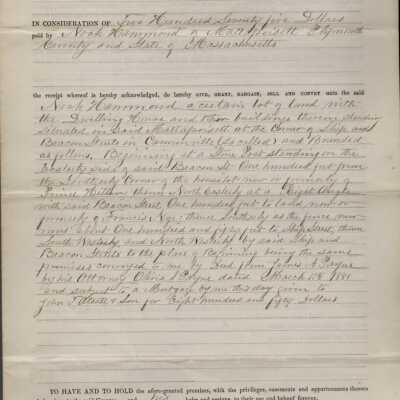 IN CONSIDERATION OF Five Hundred Seventy five Dollars
paid by Noah Hammond of Mattapoisett Plymouth
County and State of Massachusetts
the receipt whereof is hereby acknowledged, do hereby GIVE, GRANT, BARGAIN, SELL AND CONVEY unto the said
Noah Hammond a certain lot of land with
the Dwelling House and other buildings thereon standing
Situated in said Mattapoisett at the Corner of Ship and
Beacon Streets in (so called) and Bounded
as follows, Beginning at a Stone Post standing on the
Easterly side of said Beacon St One hundred feet from
the Southerly Corner of the homestead now or formerly of
Prince thence North Easterly at a Right Angle
with said Beacon Street One hundred feet to land now or
formerly of Francis thence Southerly as the fence now
runs about One hundred and fifty feet to Ship Street, thence
South Westerly and North Westerly by said Ship and
Beacon Streets to the place of Beginning being the same
premises conveyed to me by Deed from James
by his Attorney dated March 1881
and subject to a Mortgage by me this day given to
John T & Son for Eight hundred and fifty Dollars
TO HAVE AND TO HOLD the afore-granted premises, with the privileges, easements and appurtenances thereto
heirs and assigns, to their use and behoof forever.